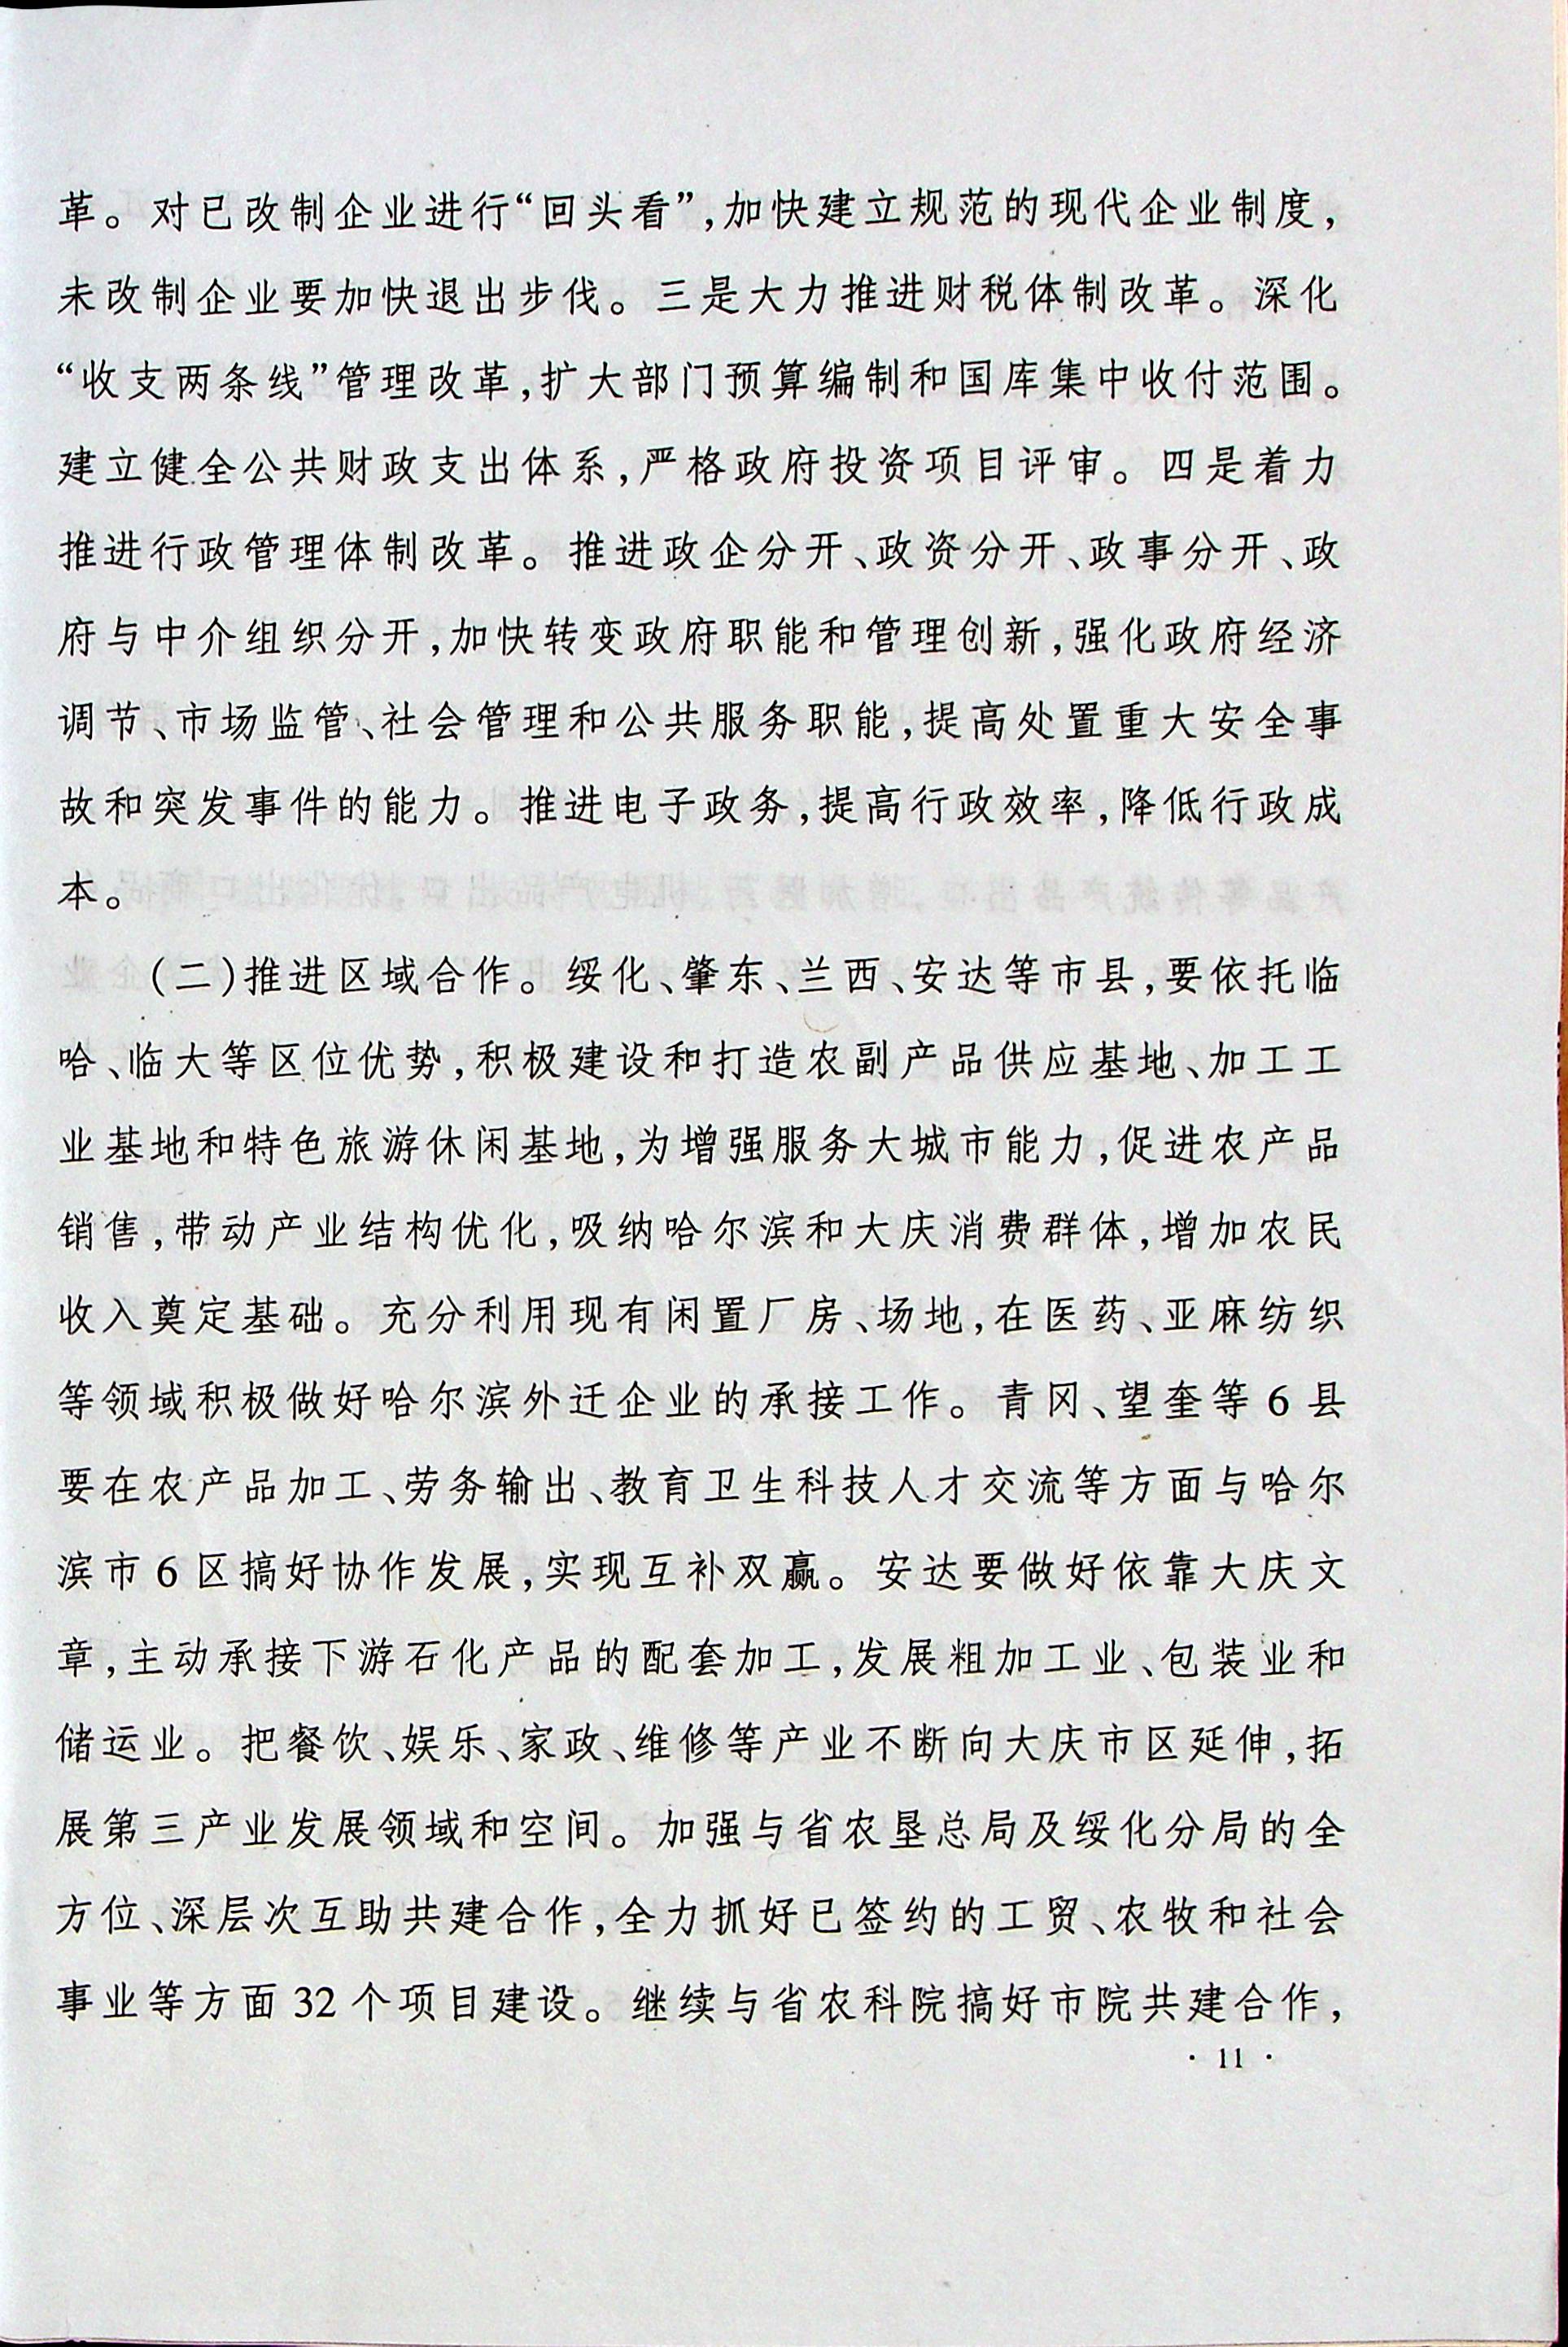 革。对已改制企业进行“回头看”,加快建立规范的现代企业制度,
未改制企业要加快退出步伐。三是大力推进财税体制改革。深化
“收支两条线”管理改革,扩大部门预算编制和国库集中收付范围。
建立健全公共财政支出体系,严格政府投资项目评审。四是着力
推进行政管理体制改革。推进政企分开、政资分开、政事分开、政
府与中介组织分开,加快转变政府职能和管理创新,强化政府经济
调节、市场监管、社会管理和公共服务职能,提高处置重大安全事
故和突发事件的能力。推进电子政务,提高行政效率,降低行政成
本。
(二)推进区域合作。绥化、肇东、兰西、安达等市县,要依托临
哈、临大等区位优势,积极建设和打造农副产品供应基地、加工工
业基地和特色旅游休闲基地,为增强服务大城市能力,促进农产品
销售,带动产业结构优化,吸纳哈尔滨和大庆消费群体,增加农民
收入奠定基础。充分利用现有闲置厂房、场地,在医药、亚麻纺织
等领域积极做好哈尔滨外迁企业的承接工作。青冈、望奎等6县
要在农产品加工、劳务输出、教育卫生科技人才交流等方面与哈尔
滨市6区搞好协作发展,实现互补双赢。安达要做好依靠大庆文
章,主动承接下游石化产品的配套加工,发展粗加工业、包装业和
储运业。把餐饮、娱乐、家政、维修等产业不断向大庆市区延伸,拓
展第三产业发展领域和空间。加强与省农垦总局及绥化分局的全
方位、深层次互助共建合作,全力抓好已签约的工贸、农牧和社会
事业等方面32个项目建设。继续与省农科院搞好市院共建合作,
· 11 ·